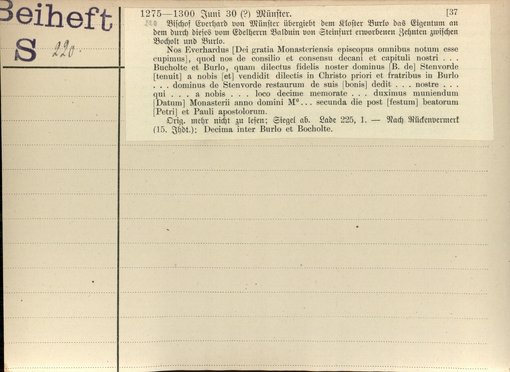 Beiheft
S 220
1275—1300 Juni 30 (?) Münster. [37
Bischof Everhard von Münster übergiebt dem Kloster Burlo das Eigentum an
dem durch dieses vom Edelherrn Balduin von Steinfurt erworbenen Zehnten zwischen
Bocholt und Burlo.
Nos Everhardus [Dei gratia Monasteriensis episcopus omnibus notum esse
cupimus], quod nos de consilio et consensu decani et capituli nostri . . .
Bucholte et Burlo, quam dilectus fidelis noster dominus [B. de] Stenvorde
[tenuit] a nobis [et] vendidit dilectis in Christo priori et fratribus in Burlo
. . . dominus de Stenvorde restaurum de suis [bonis] dedit . . . nostre . . .
qui . . . a nobis . . . loco decime memorate . . . duximus muniendum
[Datum] Monasterii anno domini Mº . . . secunda die post [festum] beatorum
[Petri] et Pauli apostolorum.
Orig. mehr nicht zu lesen; Siegel ab. Lade 225, 1. — Nach Rückenvermerk
(15. Jhdt.): Decima inter Burlo et Bocholte.